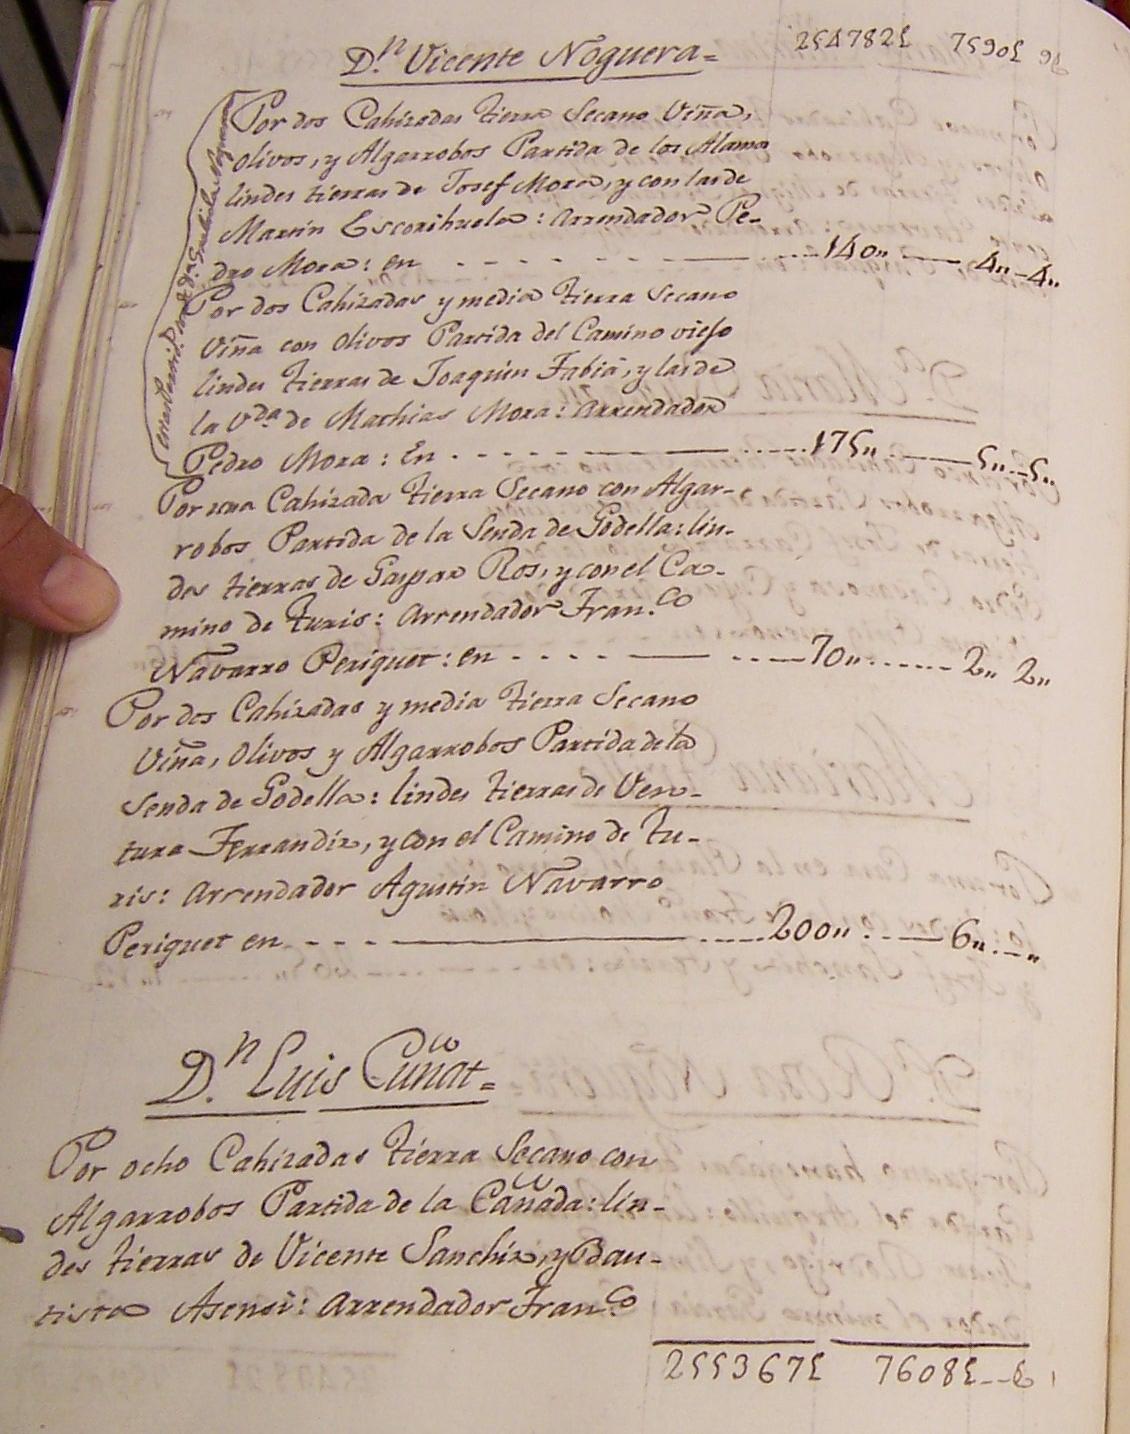 254782£ 7590£ 9
D.n Vicente Noguera=
Por dos Cahizadas tierra Secano Viña,
olivos, y Algarrobos Partida de los Alamos
lindes tierras de Josef Mora, y con las de
Martin Escorihuela: arrendador Pe-
dro Mora: en 140" 4"-4"
Por dos Cahizadas y media tierra Secano
Viña con olivos Partida del Camino viejo
lindes tierras de Joaquin Fabiá, y las de
la V.da de Mathias Mora: Arrendador
Pedro Mora: En 175" 5"-5"
Por una Cahizada tierra Secano con Algar-
robos Partida de la Senda de Godella: lin-
des tierras de Gaspar Ros, y con el Ca-
mino de Turis: Arrendador Fran.co
Navarro Periquet: en 70" 2" 2"
Por dos Cahizadas y media tierra Secano
Viña, Olivos y Algarrobos Partida de la
Senda de Godella: lindes tierras de Ven-
tura Ferrandiz, y con el Camino de Tu-
ris: Arrendador Agustin Navarro
Periquet en 200" 6"-"
D.n Luis Cuñat=
Por ocho Cahizadas tierra Secano con
Algarrobos Partida de la Cañada: lin-
des tierras de Vicente Sanchiz, y Bau-
tista Asensi: Arrendador Fran.co
255367£ 7608£